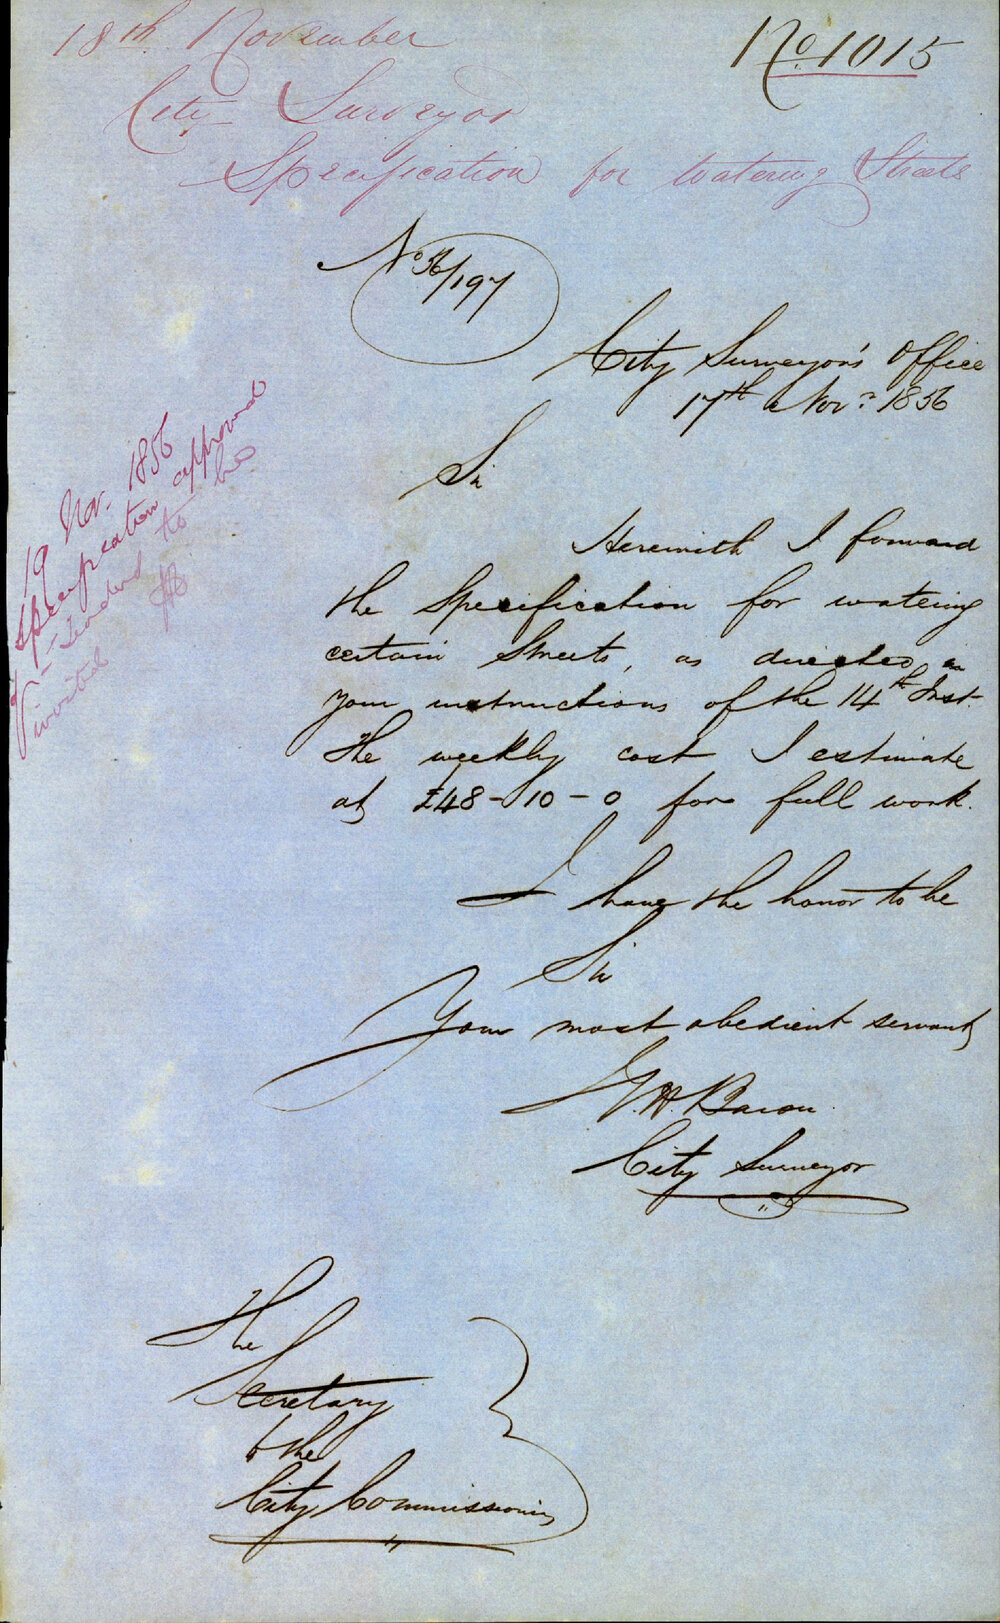 18th November
No. 1015
City Surveyor
Specification for Watering Streets
No 56/197
City Surveyor's Office
17th Novr. 1856
Sir
Herewith I forward
the Specification for watering
certain Streets, as directed in
your instructions of the 14th Inst.
The weekly cost I estimate
at £48-10-0 for full work.
I have the honor to be
Sir
Your most obedient servant
City Surveyor
The
Secretary
to the
City Commissioners
19 Nov. 1856
Specification approved
of - Tenders to be
invited